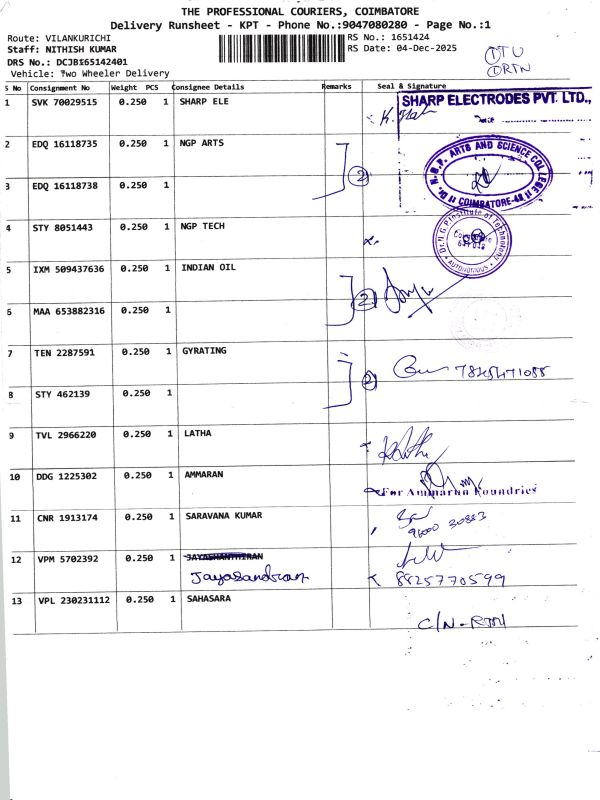 THE PROFESSIONAL COURIERS, COIMBATORE
Delivery Runsheet - KPT - Phone No.:9047080280 - Page No.:1
Route: VILANKURICHI
RS No.: 1651424
Staff: NITHISH KUMAR
RS Date: 04-Dec-2025
DRS No.: DCJB165142401
Vehicle: Two Wheeler Delivery
DTU
DRTN
S No Consignment No Weight PCS Consignee Details Remarks Seal & Signature
1 SVK 70029515 0.250 1 SHARP ELE
SHARP ELECTRODES PVT. LTD.,
2 EDQ 16118735 0.250 1 NGP ARTS
Dr. N.G.P. ARTS AND SCIENCE COLLEGE
COIMBATORE-48
3 EDQ 16118738 0.250 1 2
4 STY 8051443 0.250 1 NGP TECH
Dr. N.G.P Institute of Technology
Coimbatore
641 048
AUTONOMOUS
5 IXM 509437636 0.250 1 INDIAN OIL
6 MAA 653882316 0.250 1 2
7 TEN 2287591 0.250 1 GYRATING
8 STY 462139 0.250 1 2
9 TVL 2966220 0.250 1 LATHA
10 DDG 1225302 0.250 1 AMMARAN
For Ammarun Foundries
11 CNR 1913174 0.250 1 SARAVANA KUMAR
12 VPM 5702392 0.250 1 JAYASHANTHIRAN
Jayasandran 8825770599
13 VPL 230231112 0.250 1 SAHASARA
C/N-RTN